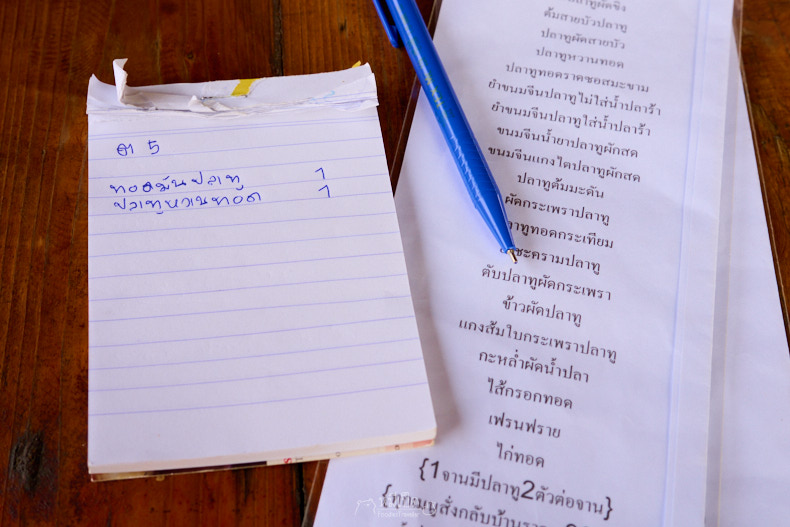 ต 5
ทอดมันปลาทู 1
ปลาทูหวานทอด 1
ปลาทูผัดขิง
ต้มสายบัวปลาทู
ปลาทูผัดสายบัว
ปลาทูหวานทอด
ปลาทูทอดราดซอสมะขาม
ยำขนมจีนปลาทูไม่ใส่น้ำปลาร้า
ยำขนมจีนปลาทูใส่น้ำปลาร้า
ขนมจีนน้ำยาปลาทูผักสด
ขนมจีนแกงไตปลาทูผักสด
ปลาทูต้มมะดัน
ผัดกระเพราปลาทู
าทูทอดกระเทียม
ชะครามปลาทู
ตับปลาทูผัดกระเพรา
ข้าวผัดปลาทู
แกงส้มใบกระเพราปลาทู
กะหล่ำผัดน้ำปลา
ไส้กรอกทอด
เฟรนฟราย
ไก่ทอด
{1จานมีปลาทู2ตัวต่อจาน}
{ทุกเมนูสั่งกลับบ้าน